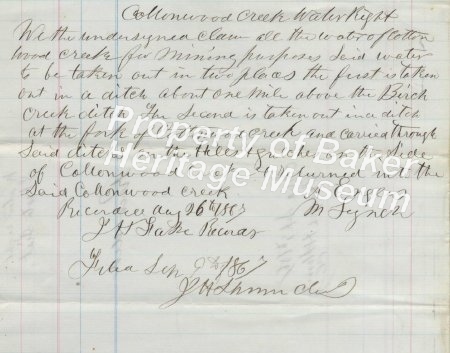 Cottonwood Creek Water Right
We the undersigned claim all the water of Cotton
wood creek for mining purposes Said water
to be taken out in two places the first is taken
out in a ditch about one mile above the Birch
Creek ditch The Second is taken out in a ditch
at the fork of Cottonwood creek and carried through
Said ditch to the Hills gulches on side
of Cottonwood returned into the
Said Cottonwood creek
M Lynch
Recorded Aug 26th 1867
J H Recorder
Filed Sep 9th 1867
J H Shinn Clerk
Property of Baker
Heritage Museum